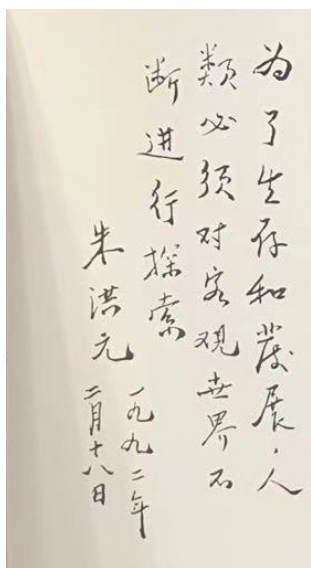 为了生存和發展，人
类必须对客观世界不
断进行探索
朱洪元
一九九二年
二月十八日